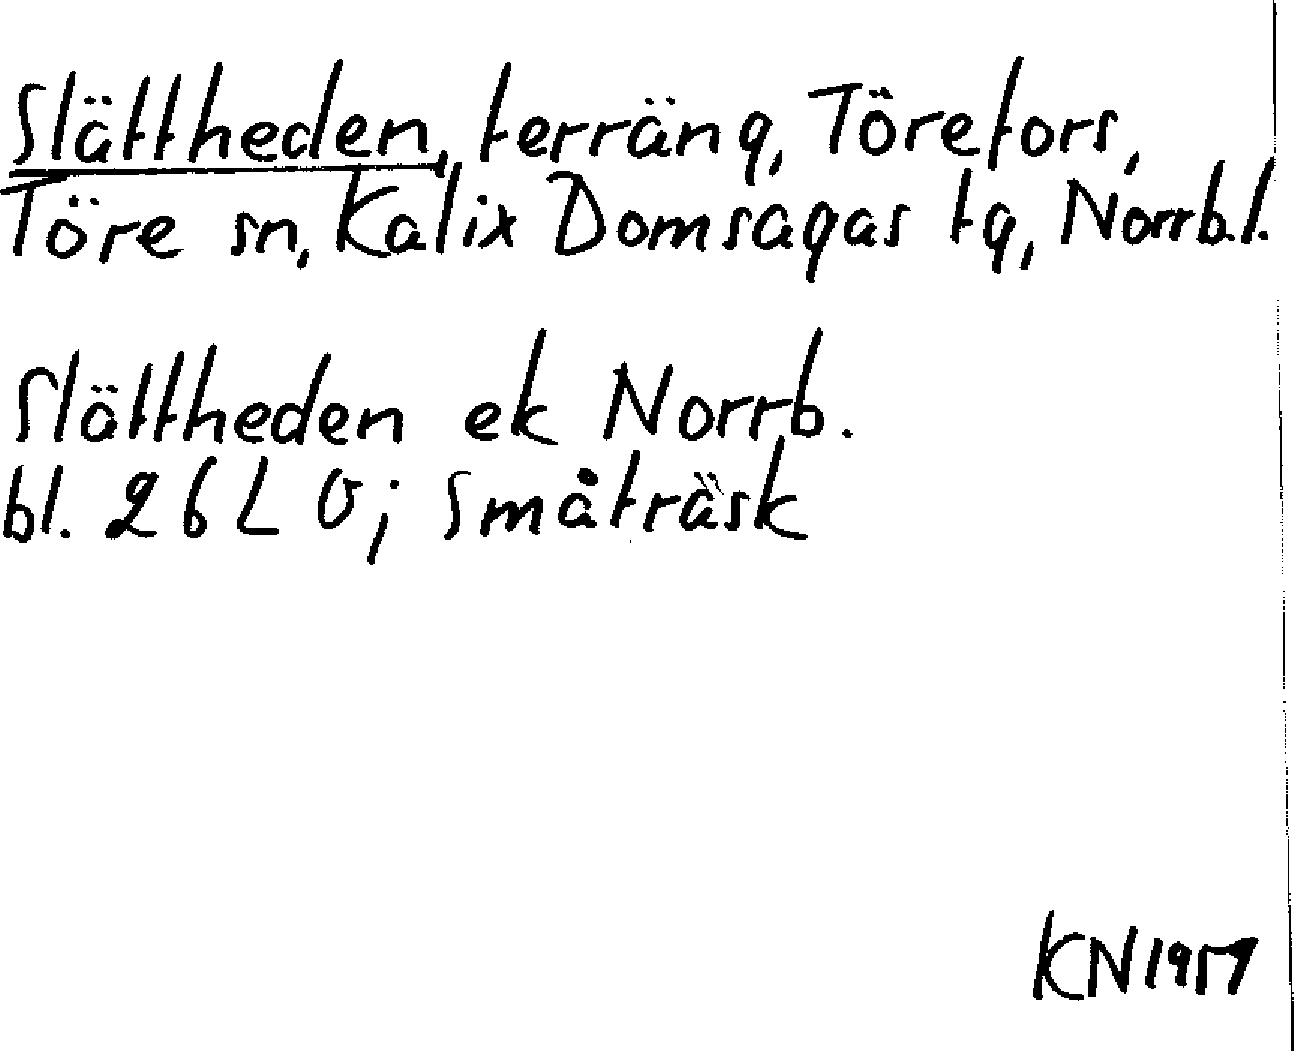 Slättheden, terräng, Törefors,
Töre sn, Kalix Domsagas tg, Norrb.l.
Slättheden ek Norrb.
bl. 26 L O; Småträsk
KN